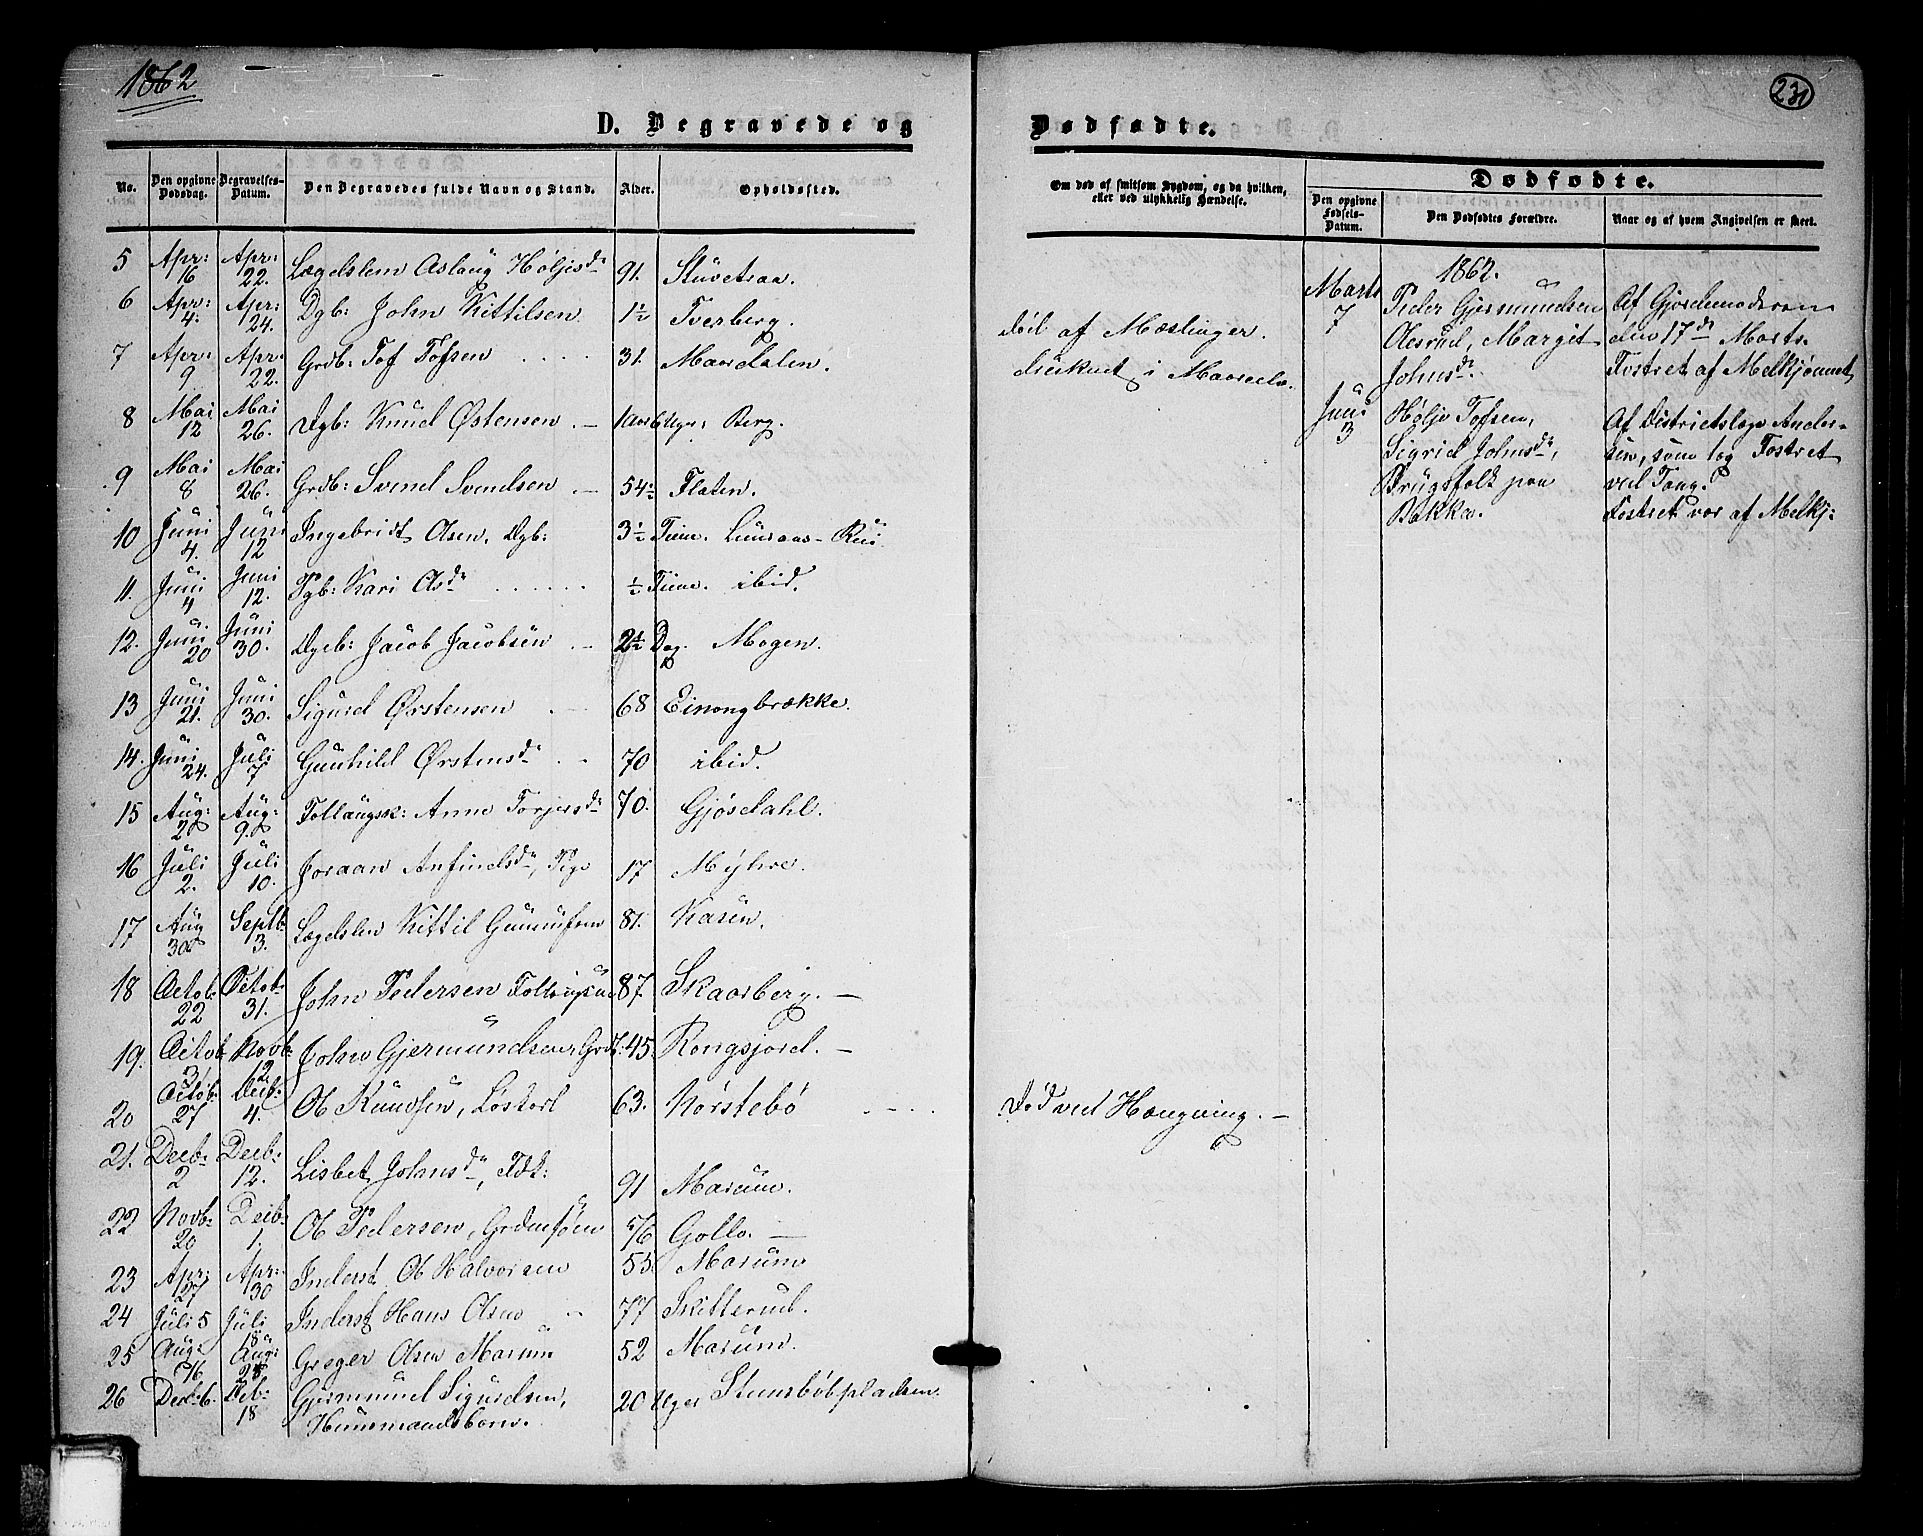 1862
231
D. Begravede og
Dødfødte.
No.
Den opgivne Dødsdag.
Begravelses-Datum.
Den Begravedes fulde Navn og Stand.
Alder.
Opholdssted.
Om død af smitsom Sygdom, og da hvilken, eller ved ulykkelig Hændelse.
Dødfødte.
Den opgivne Fødsels-Datum.
Den Dødfødtes Forældre.
Naar og af hvem Angivelsen er skeet.
5 Apr: 16 Apr: 22. Lægdslem Aslaug Høljesdr 91. Stuvetraa.
6 Apr: 4. Apr: 24. Dgb: John Kittilsen 1½ Tverberg. død af Mæslinger.
7 Apr: 9 Apr: 22. Grdb: Tof Tofsen 31. Maardalen. druknet i Maarelv.
8 Mai 12 Mai 26. Dgb: Knud Østensen Berg.
9 Mai 8 Mai 26. Grdb: Svend Svendsen 54½ Flaten.
10 Juni 4. Juni 12 Ingebridt Olsen, Dgb: 3½ Time. Luuraas-Rui
11. Juni 4 Juni 12. Pgb: Kari Olsdr ½ Time. ibid.
12. Juni 20 Juni 30. Dgb: Jacob Jacobsen 2½ Dag. Mogen.
13 Juni 21. Juni 30. Sigurd Ørstensen 68 Einongbrække.
14. Juni 24. Juli 7 Gunhild Ørstensdr 70 ibid.
15 Aug: 2 Aug: 9. Follaugsk: Anne Torjersdr 70. Gjøsdahl.
16 Juli 2. Juli 10. Joraan Anfindsdr, Pige 17 Myhre.
17 Aug 30 Septb: 3. Lægdslem Kittil Gunnufsen 81. Kasin.
18 Octob: 22 Octob: 31. John Pedersen 87. Skaarberg.
19. Octob: 31 Novb: 12 John Gjermundsen Grdb: 45. Rongsjord.
20 Octob: 27 Decb: 4. Ol Knudsen, Løskarl 63. Kørstebø Død ved Hængning.
21. Decb: 2 Decb: 12. Lisbet Johnsdr, Fdk: 91 Marum.
22 Novb: 20 Decb: 1. Ol Pedersen, 76 Gollo.
23 Apr: 27 Apr: 30 Inderst Ol Halvorsen 53 Marum
24 Juli 5 Juli 18 Inderst Hans Olsen 77 Skitterud.
25 Aug: 16 Aug: Greger Olsen Marum 52 Marum.
26 Decb 6. Deb: 18 Gjermund Sigurdsen, 20 Uger Steensbøbpladsen
Huusmandsbarn.
1862.
Marts 7
Peder Gjermundsen
Olesrud, Margit
Johnsdr.
Af Gjordemoderen
den 17de Marts.
Fostret af Melkjønnet
Juni 3
Hølje Tofsen,
Sigrid Johnsdr,
Brugsfolk paa
Bakka.
Af Districtslæge Ander-
sen, som tog Fostret
ved Tang.
Fostret var af Melkj: